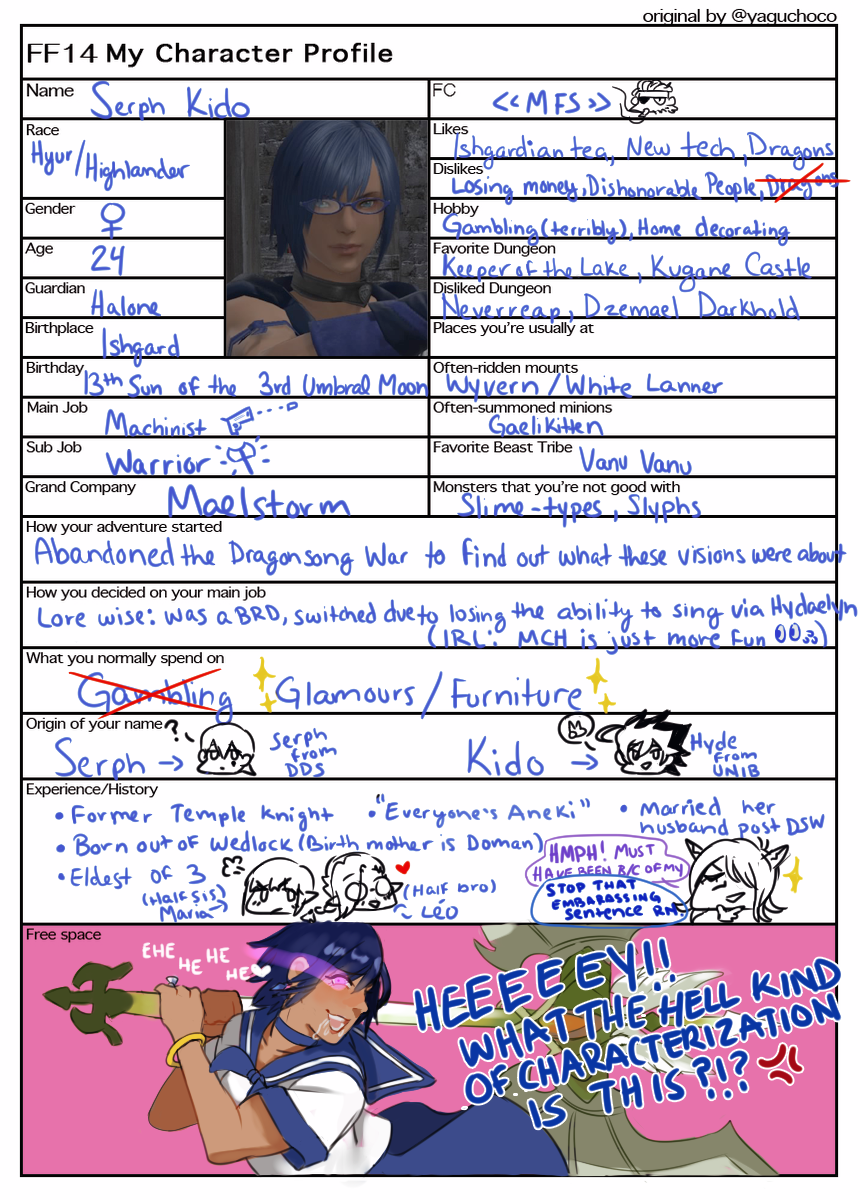 original by @yaguchoco
FF14 My Character Profile
Name
Serph Kido
FC
<<MFS>>
Race
Hyur/Highlander
Gender
♀
Age
24
Guardian
Halone
Birthplace
Ishgard
Likes
Ishgardian tea, New tech, Dragons
Dislikes
Losing money, Dishonorable People, Dragons
Hobby
Gambling (terribly), Home decorating
Favorite Dungeon
Keeper of the Lake, Kugane Castle
Disliked Dungeon
Neverreap, Dzemael Darkhold
Places you're usually at
Birthday
13th Sun of the 3rd Umbral Moon
Often-ridden mounts
Wyvern / White Lanner
Main Job
Machinist
Often-summoned minions
Gaelikitten
Sub Job
Warrior
Favorite Beast Tribe
Vanu Vanu
Grand Company
Maelstorm
Monsters that you're not good with
Slime-types, Slyphs
How your adventure started
Abandoned the Dragonsong War to find out what these visions were about
How you decided on your main job
Lore wise: was a BRD, switched due to losing the ability to sing via Hydaelyn
(IRL: MCH is just more fun
What you normally spend on
Gambling Glamours / Furniture
Origin of your name
Serph →
?
Serph
from
DDS
Kido →
Hyde
from
UNIB
Experience/History
• Former Temple Knight
• "Everyone's Aneki"
• Married her
husband post DSW
• Born out of wedlock (Birth mother is Doman)
• Eldest of 3
(Half sis)
Maria →
(Half bro)
Léo
HMPH! MUST
HAVE BEEN B/C OF MY
STOP THAT
EMBARASSING
SENTENCE RN.
Free space
EHE
HE HE
HE
HEEEEEY!!
WHAT THE HELL KIND
OF CHARACTERIZATION
IS THIS?!?